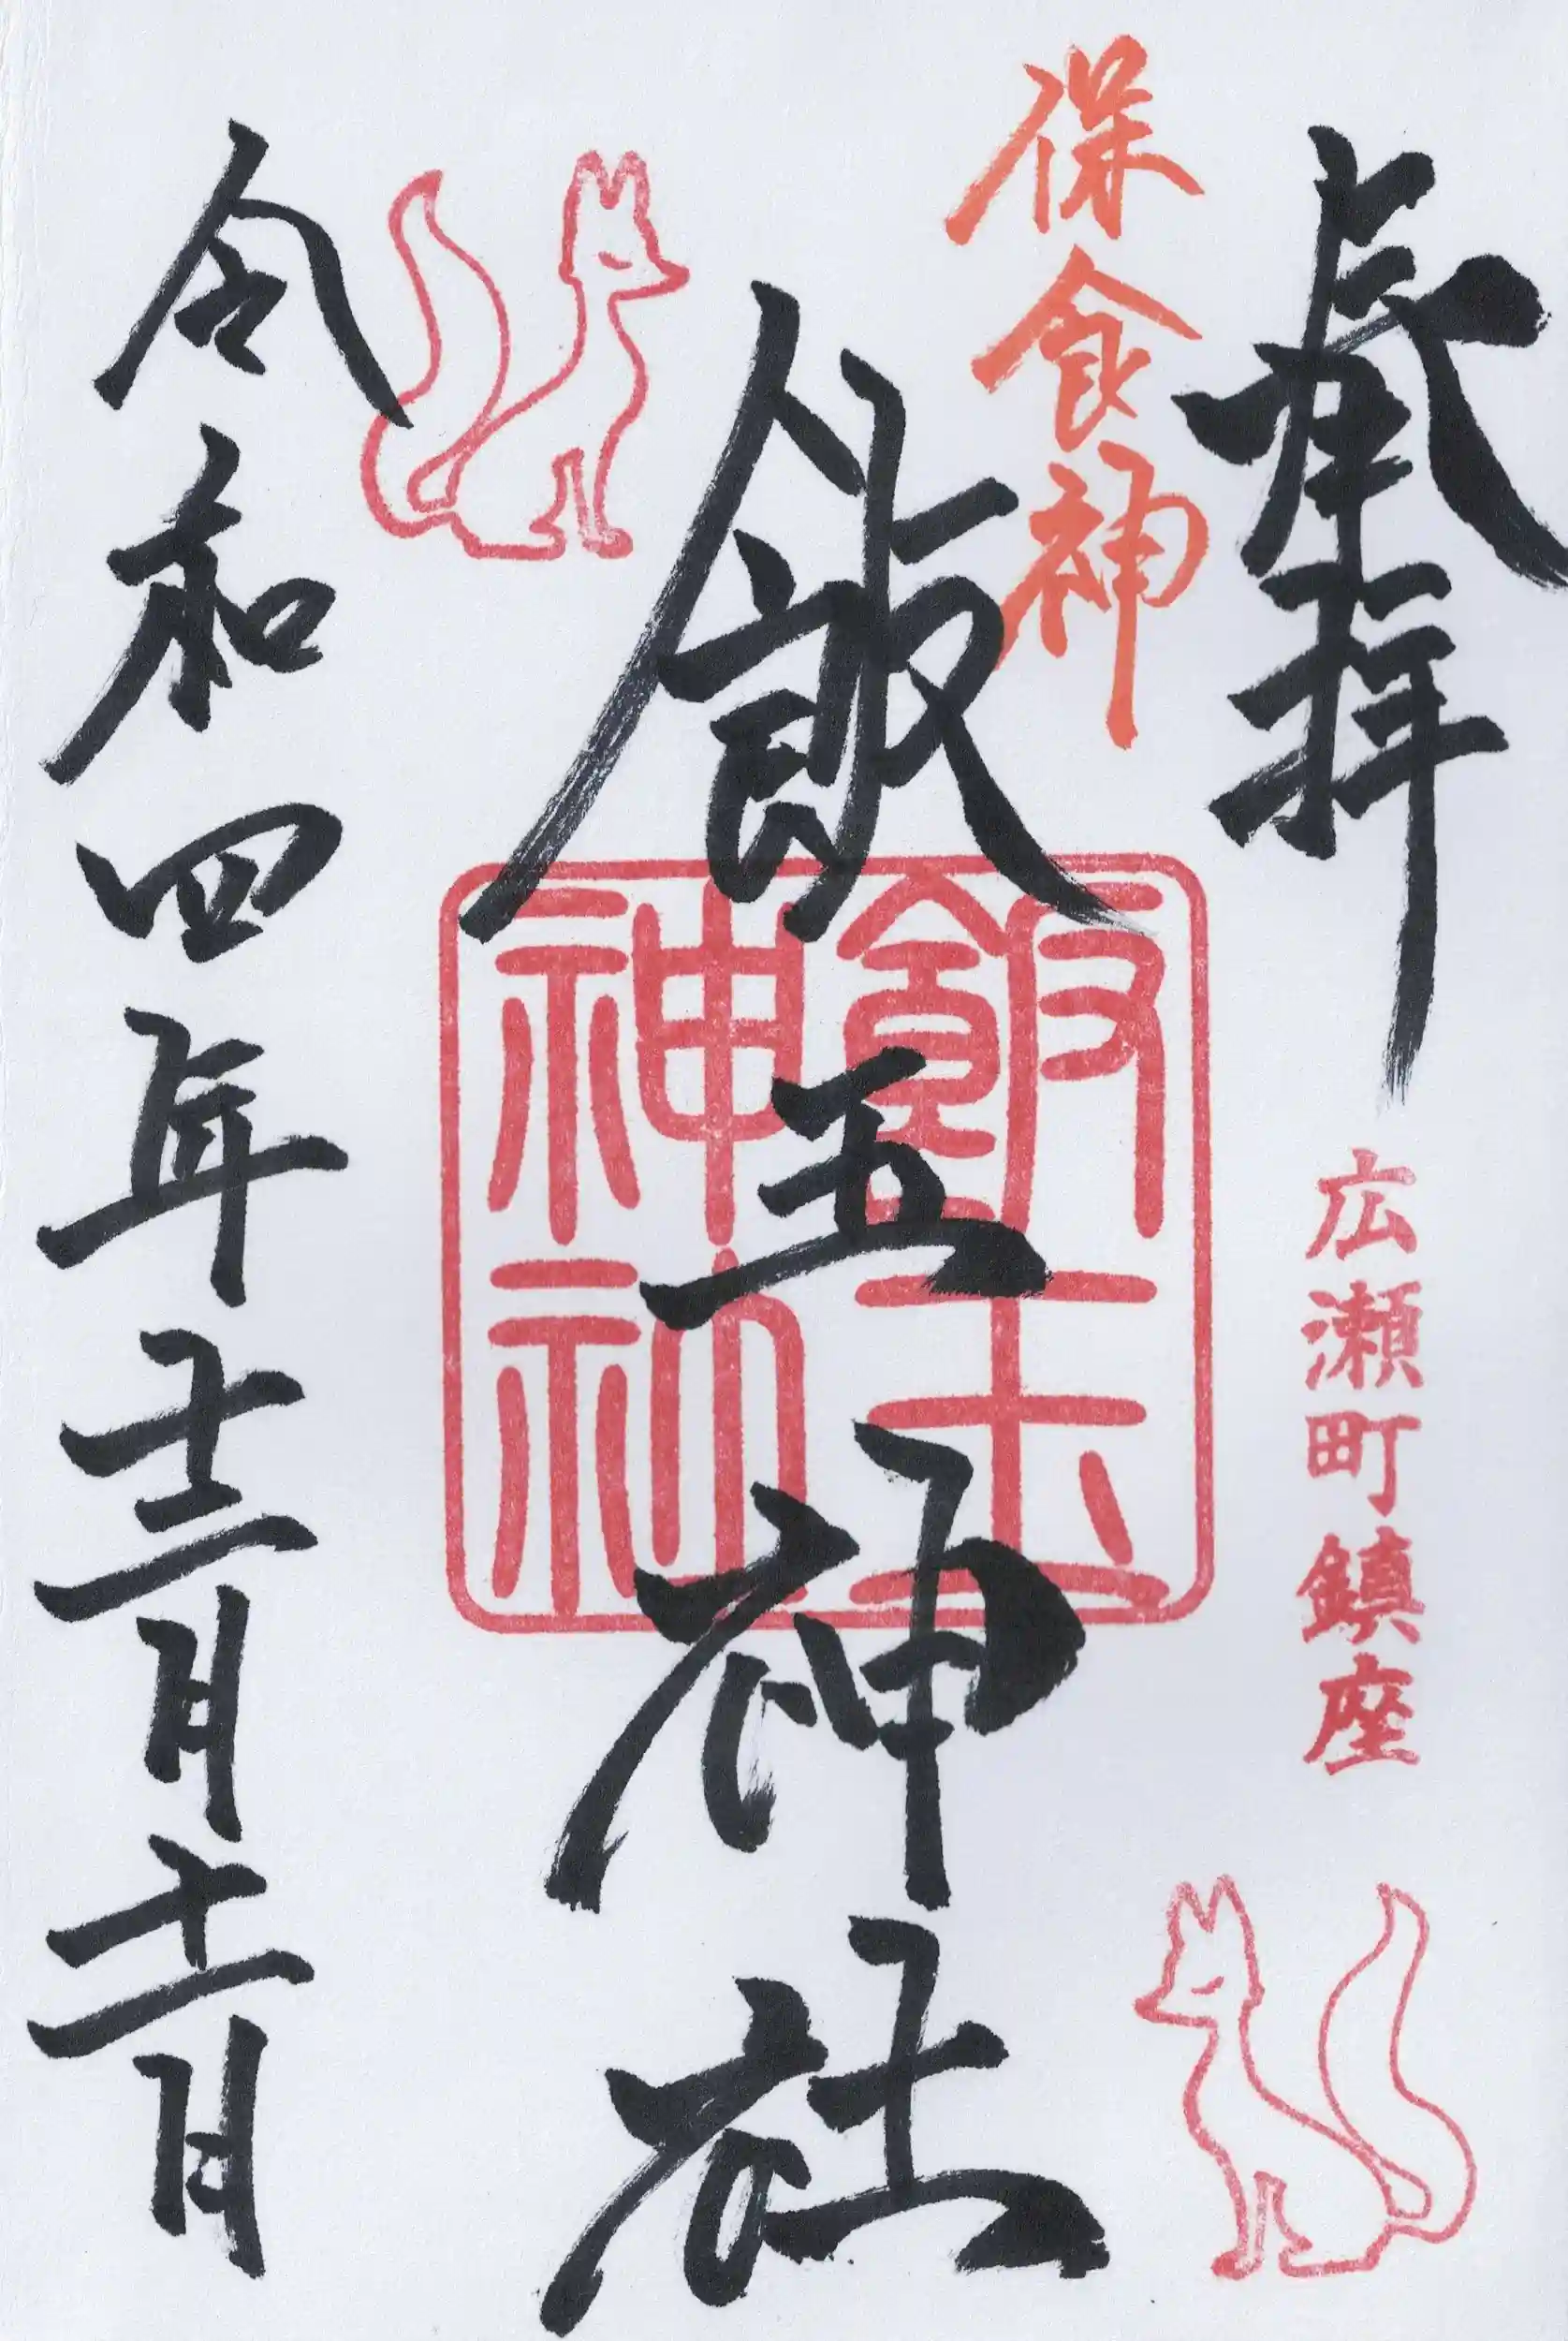 奉拝
広瀬町鎮座
保食神
飯玉神社
飯玉
神社
令和四年十二月十一日